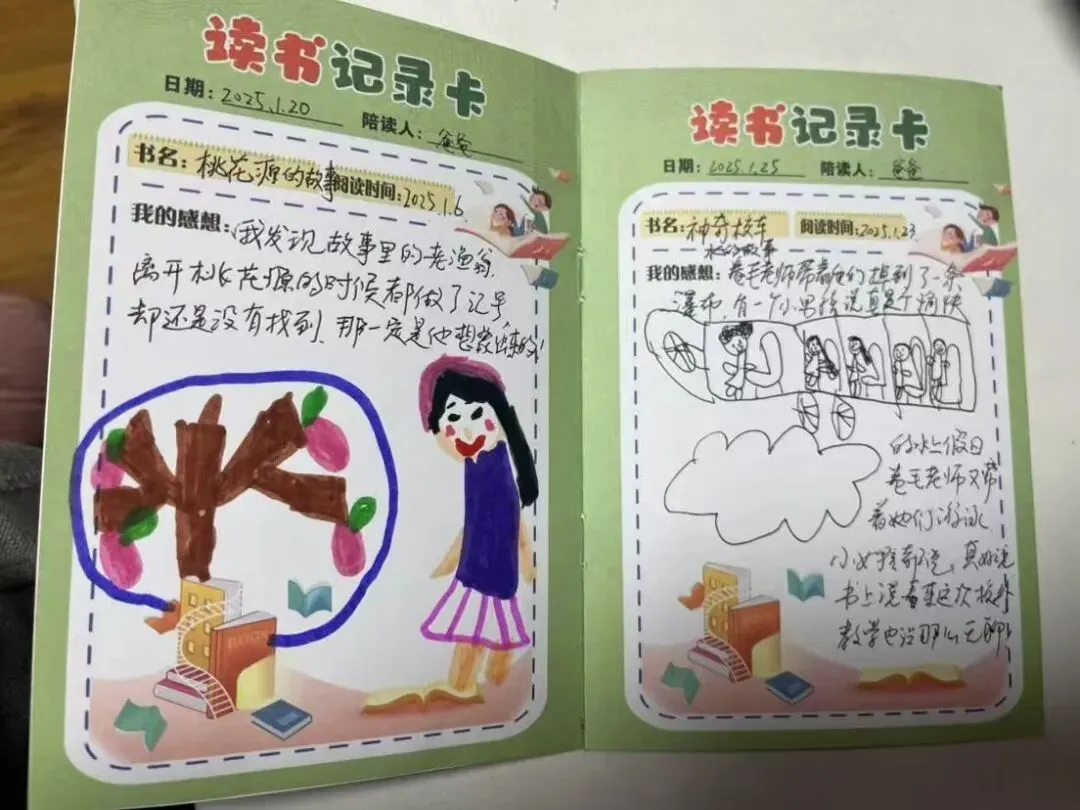 读书记录卡
日期：2025.1.20 陪读人：爸爸
书名：桃花源的故事 阅读时间：2025.1.6
我的感想：我发现故事里的老渔翁,
离开桃花源的时候都做了记号
却还是没有找到,那一定是他想象出来的!
BOOK
读书记录卡
日期：2025.1.25 陪读人：爸爸
书名：神奇校车 阅读时间：2025.1.23
水的故事
我的感想：卷毛老师带着他们 到了一条
瀑布,有一个小男孩说真是个愉快
的水上假日
卷毛老师又带
着她们游泳
小女孩都说,真好玩
书上说看来这次校外
教学也没那么无聊